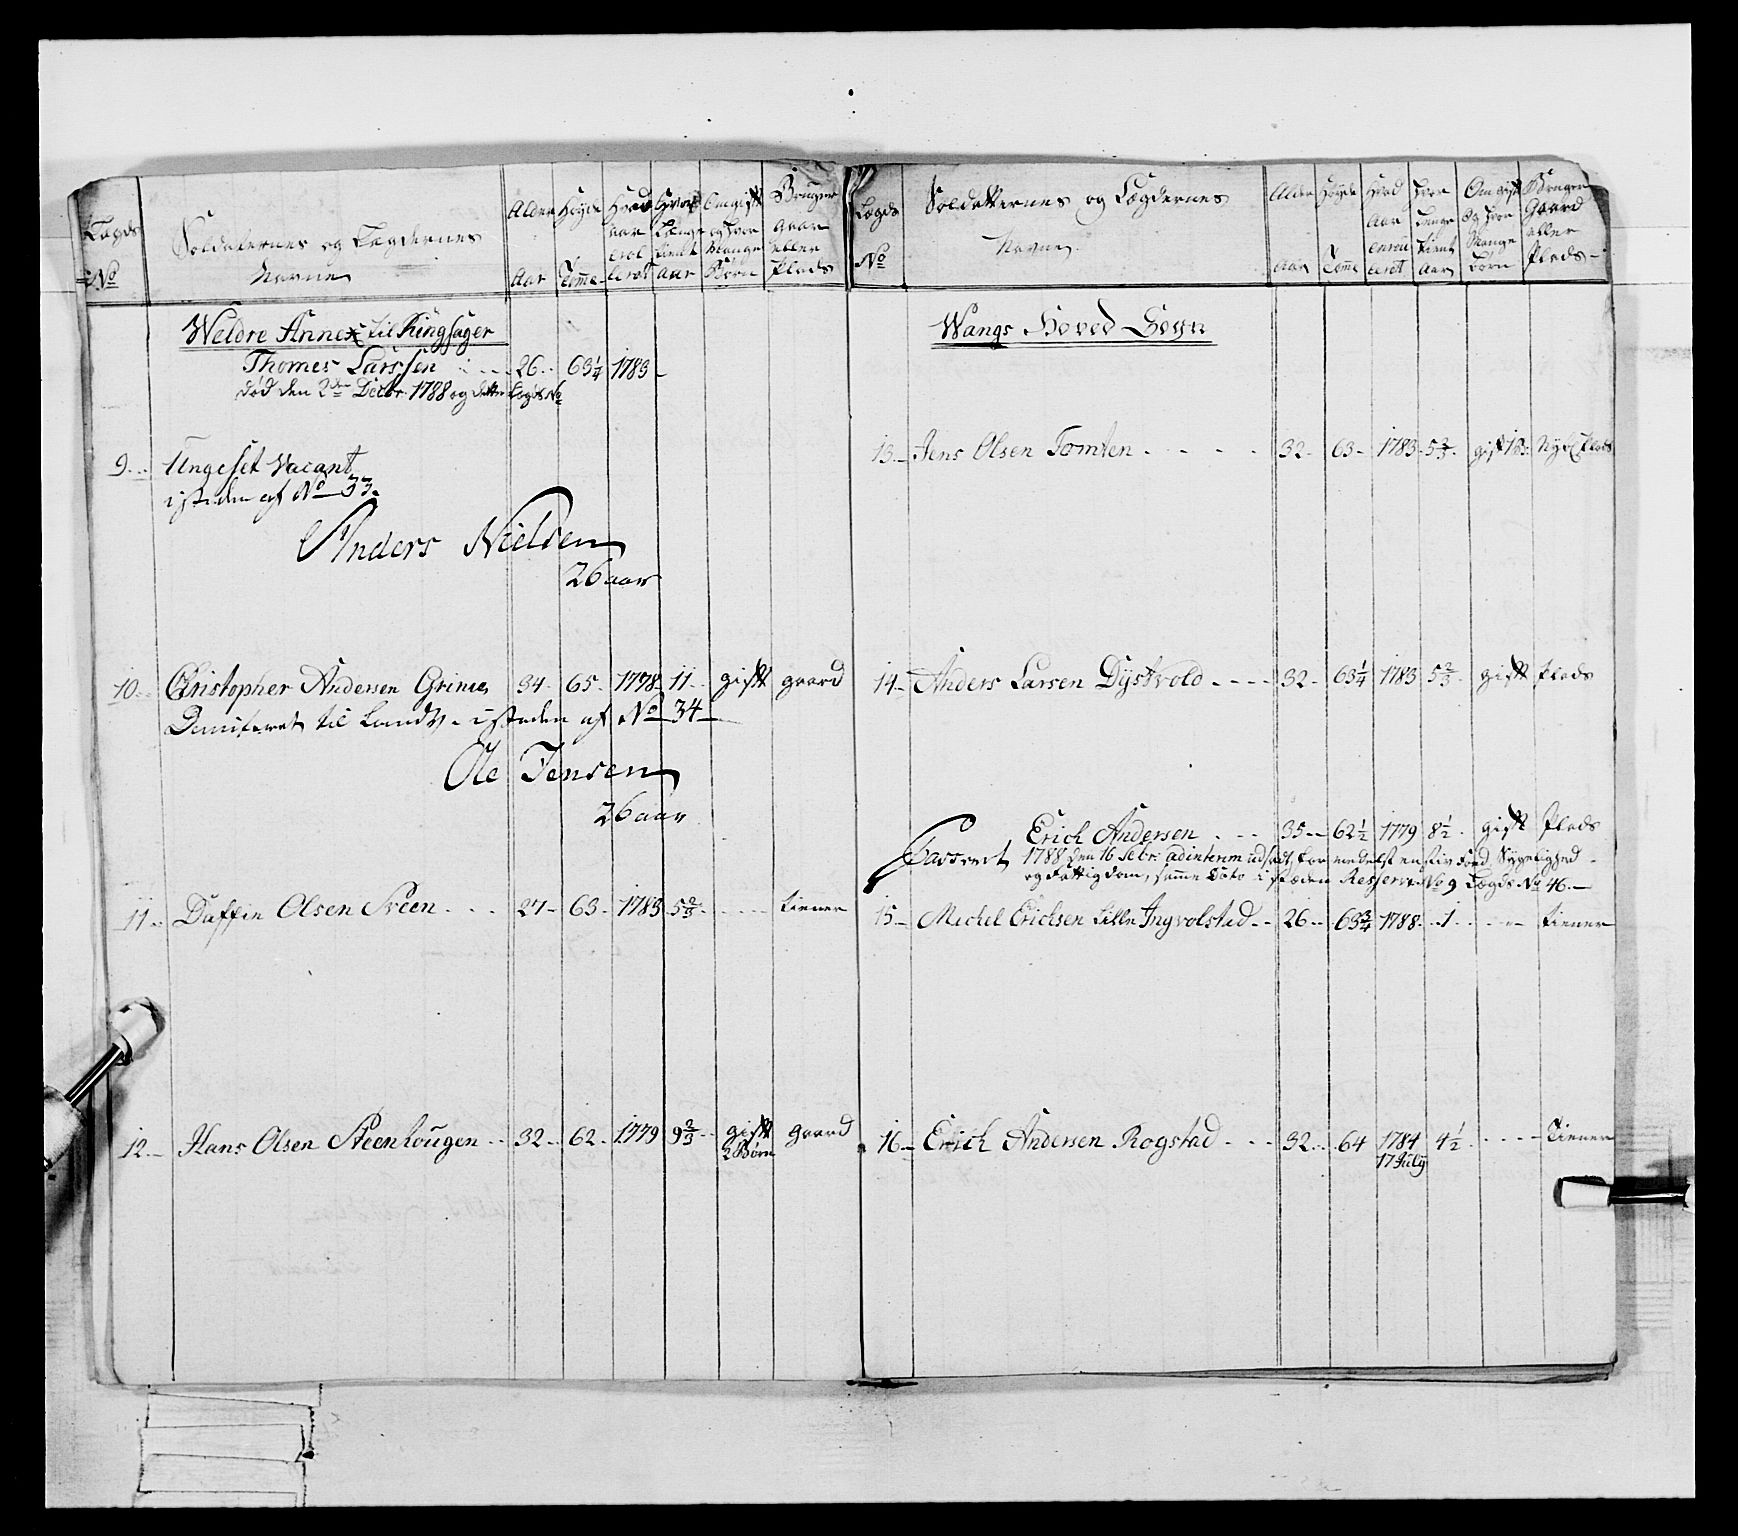 Lægds No
Soldaternes og Lægdernes Navne
Alder Aar
Høyde Tomme
Hvad aar
Hvor Længe tient aar
Om gift og hvor Mange Børn
Bruger gaar eller Plads
Weldre Annex til Ringsager
Thomes Larssen 26 63 1/4 1783
død den 2den Decbr. 1788 og dette Lægds No
9 Ungeset Vacant
i steden af No 33
Anders Nielsen
26 aar
10 Christopher Andersen Grime 34 65 1778 11 gift gaard
Demiteret til Landv. i steden af No 34
Ole Jensen
26 aar
11 Daffin Olsen Sveen 27 63 1783 5 2/3 tiener
12 Hans Olsen Steenhougen 32 62 1779 9 2/3 gift gaard
2 Børn
Lægds No
Soldatternes og Lægdernes Navne
Alder Aar
Høyde Tomme
Hvad Aar
Hvor Længe tient Aar
Om gift Og hvor Mange Børn
Bruger Gaard eller Plads
Wangs Hoved Sogn
13 Jens Olsen Tomten 32 63 1783 5 2/3 gift Plads
14 Anders Larsen Dystvold 32 63 1/4 1783 5 2/3 gift Plads
Casseret Erich Andersen 35 62 1/2 1779 8 1/2 gift Plads
1788 den 16 Febr: ad interim udsadt, formedelst en stiv Foed, Sygelighed
og Fattigdom, samme Dato i stæden Reserve No 9 Lægds No 46
15 Michel Erichsen tille Ingvolstad 26 63 3/4 1788 1 tiener
16 Erich Andersen Rogstad 32 64 1784 4 1/2 Tiener
17 July